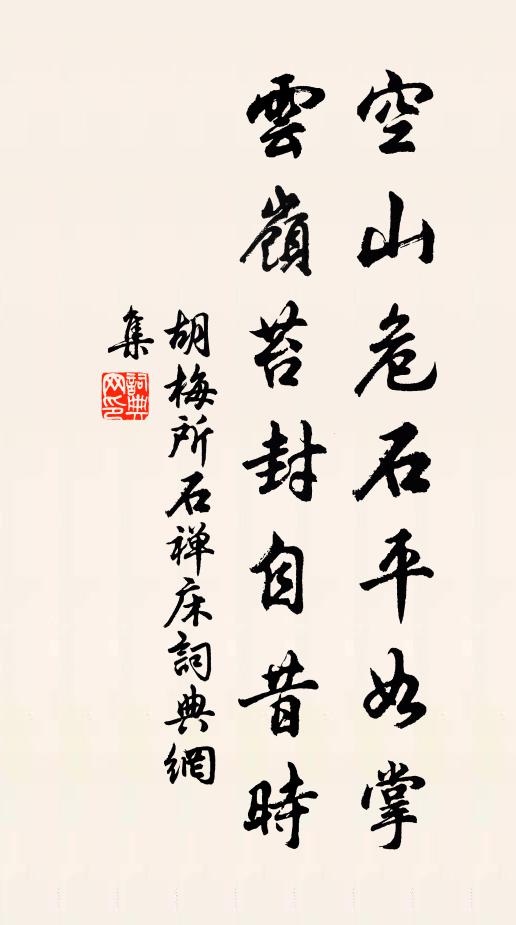 空山危石平如掌
雲嶺苔封自昔時
胡梅所石禅床詞典網
集
詞典
网印